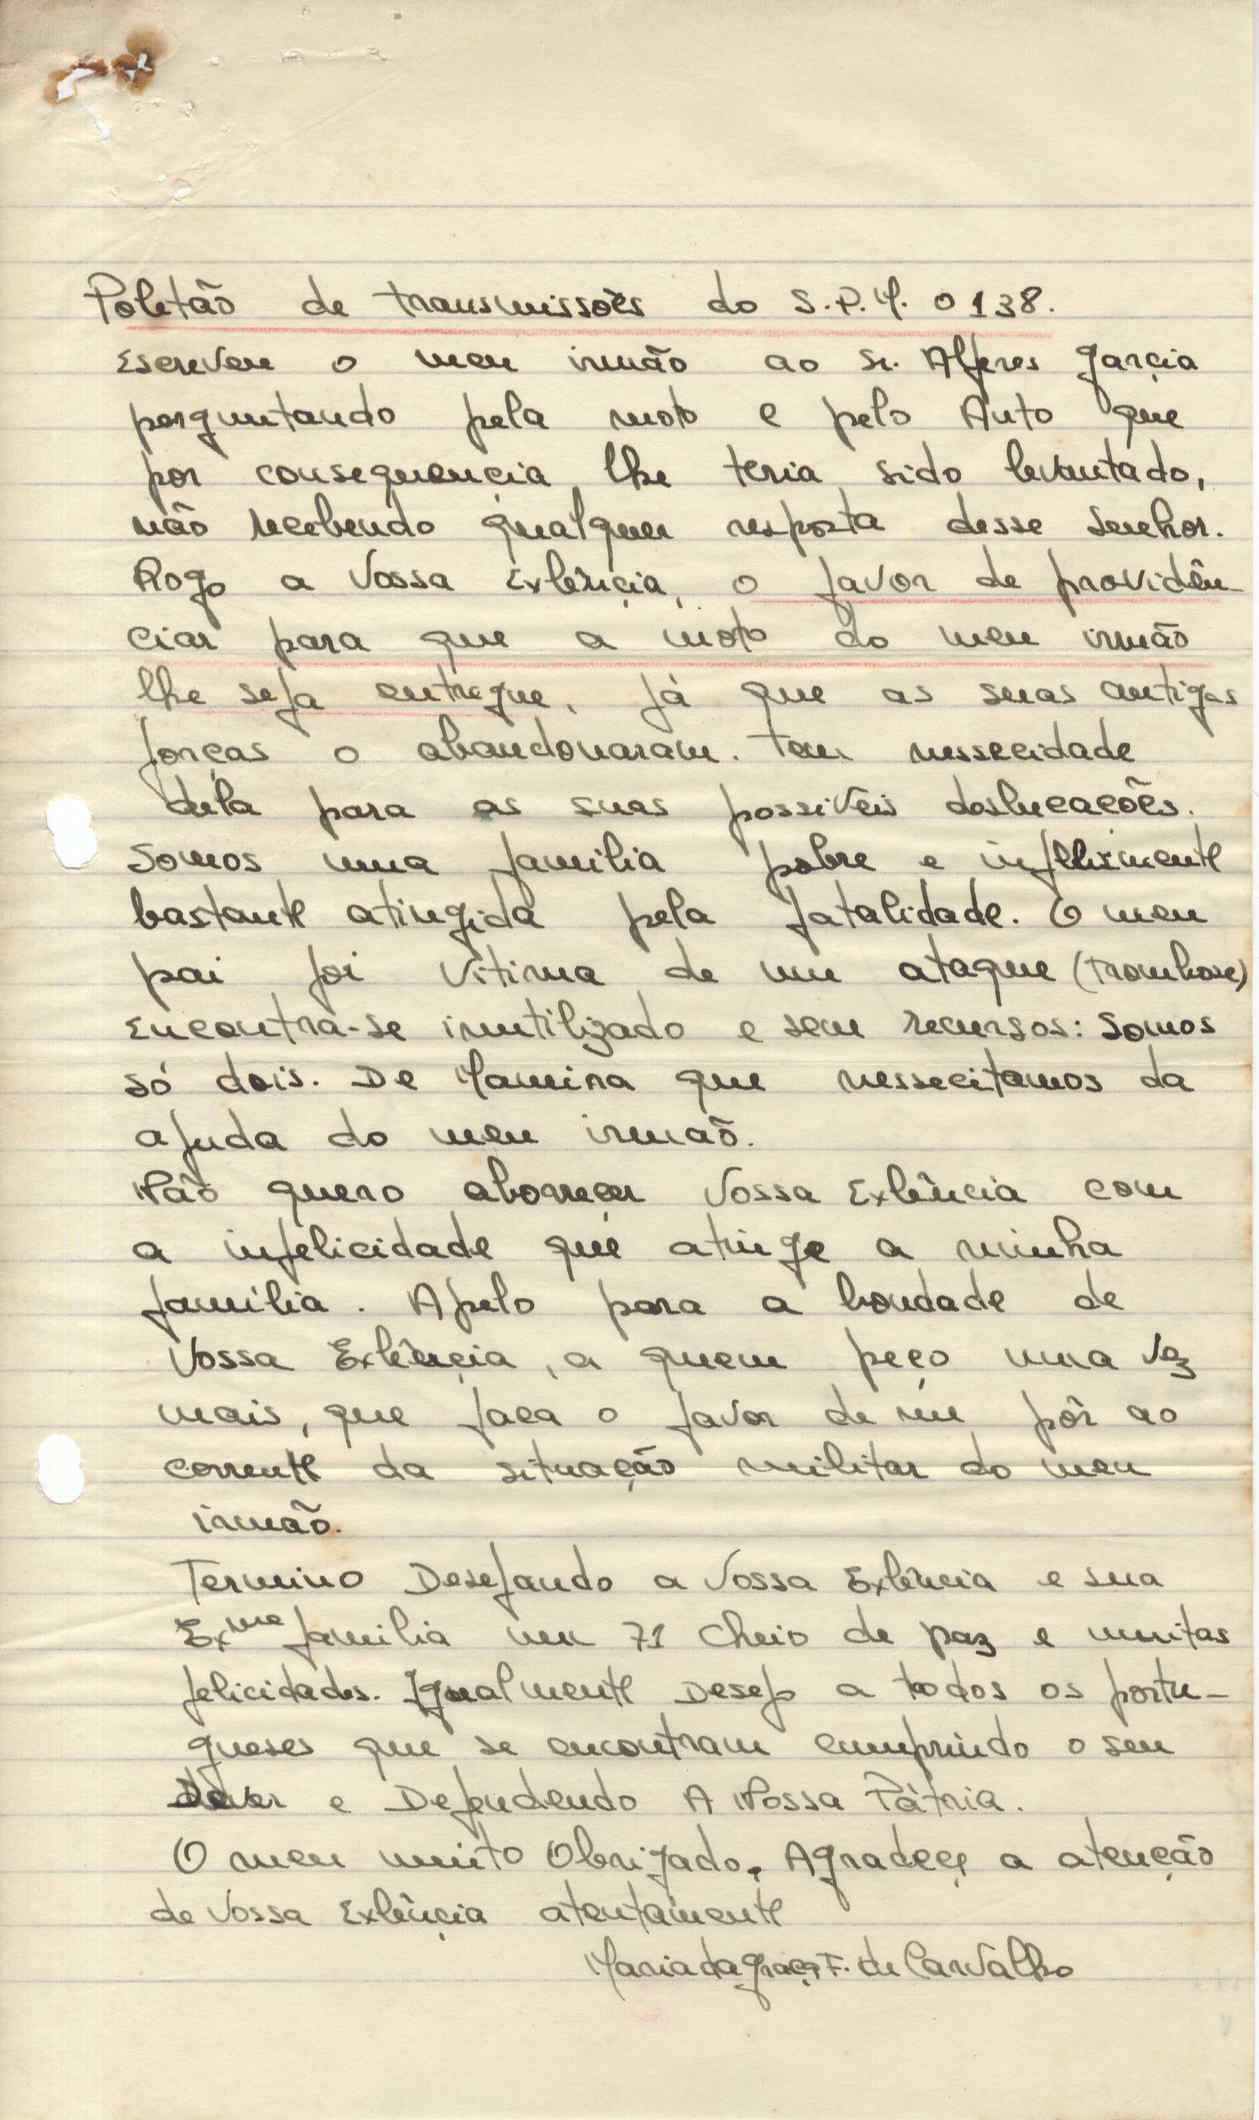 Poletão de transmissões do S.P.M. 0138.
Escreveu o meu irmão ao Sr. Alferes Garçia
perguntando pela moto e pelo Auto que
por consequençia lhe teria sido levantado,
não recebendo qualquer resposta desse Senhor.
Rogo a Vossa Exlênçia, o favor de providên-
ciar para que a moto do meu irmão
lhe seja entregue, já que as suas antigas
forças o abandonaram. Tem nessecidade
dela para as suas possiveis doslucações.
Somos uma familia pobre e infelixmente
bastante atingida pela fatalidade. O meu
pai foi Vitima de um ataque (trombose)
Encontra-se inutilizado e sem recursos: Somos
só dois. De Maneira que nessecitamos da
ajuda do meu irmaõ.
Não quero aborreçer Vossa Exlência com
a infelicidade que atinge a minha
familia. Apelo para a bondade de
Vossa Exlênçia, a quem peço uma Vez
mais, que faca o favor de me pôr ao
corrente da situação militar do meu
irmão.
Termino Desejando a Vossa Exlência e sua
Exme familia um 71 cheio de paz e muitas
felicidades. Igualmente Desejo a todos os portu-
gueses que se encontram cumprindo o seu
Dever e Defendendo A Nossa Pátria.
O meu muito Obrigado, Agradeço a atenção
de Vossa Exlênçia atentamente
Maria da Graça F. de Carvalho